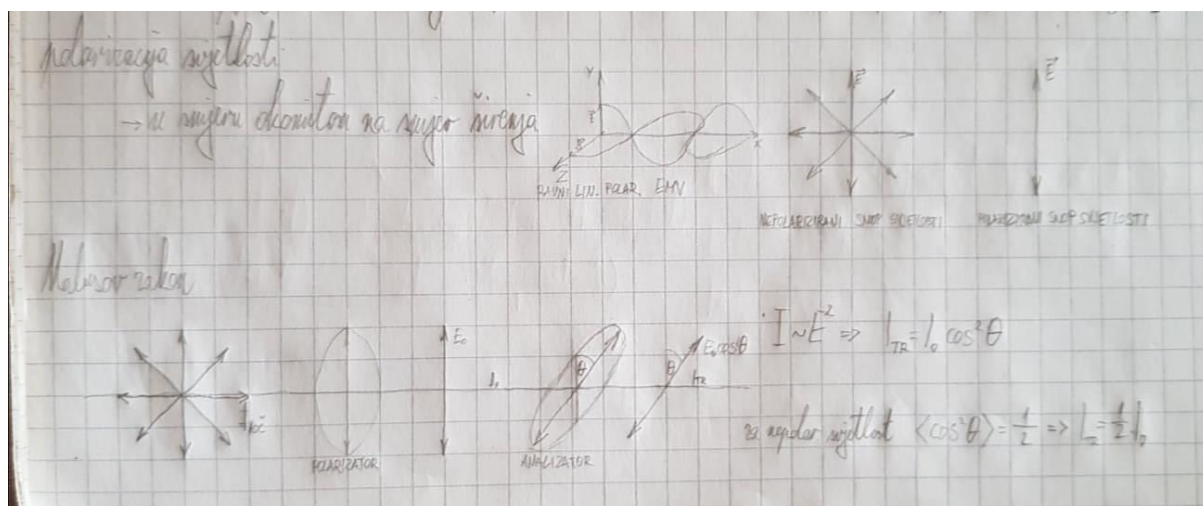 polarizacija svjetlosti
→ u smjeru okomitom na smjer širenja
Y
E
B
Z
X
RAVNI LIN. POLAR. EMV
E
NEPOLARIZIRANI SNOP SVJETLOSTI
E
POLARIZIRANI SNOP SVJETLOSTI
Malusov zakon
POLARIZATOR
E₀
I₀
θ
ANALIZATOR
θ
E₀cosθ
I ~ E² ⇒ I_TR = I₀ cos²θ
za nepolar svjetlost ⟨cos²θ⟩ = 1/2 ⇒